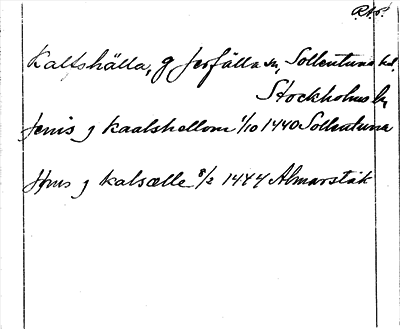 Kalfshälla, g Jerfälla sn, Sollentuna hd.
Stockholms ln
Jenis j Kaalshellom 1/10 1440 Sollentuna
Jfrus j Kalsælle 8/2 1444 Almarstäk